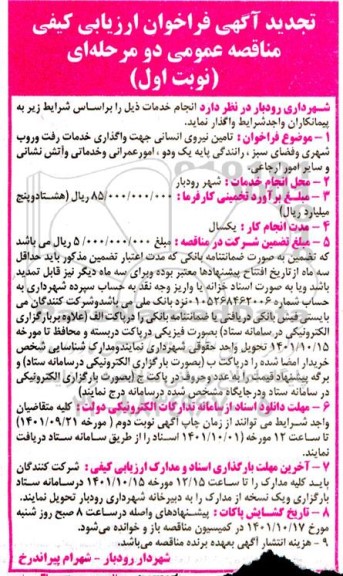 تجدید آگهی فراخوان ارزیابی کیفی
مناقصه عمومی دو مرحله‌ای
(نوبت اول)
شهرداری رودبار در نظر دارد انجام خدمات ذیل را براساس شرایط زیر به
پیمانکاران واجدشرایط واگذار نماید.
۱ - موضوع فراخوان : تامین نیروی انسانی جهت واگذاری خدمات رفت وروب
شهری وفضای سبز ، رانندگی پایه یک ودو ، امورعمرانی وخدماتی وآتش نشانی
و سایر امور ارجاعی
۲ - محل انجام خدمات : شهر رودبار
۳ - مبلغ برآورد تخمینی کارفرما : ۸۵/۰۰۰/۰۰۰/۰۰۰ ریال (هشتادوپنج
میلیارد ریال)
۴ - مدت انجام کار : یکسال
۵ - مبلغ تضمین شرکت در مناقصه : مبلغ ۵/۰۰۰/۰۰۰/۰۰۰ ریال می باشد
که تضمین به صورت ضمانتنامه بانکی که مدت اعتبار تضمین مذکور باید حداقل
سه ماه از تاریخ افتتاح پیشنهادها معتبر بوده وبرای سه ماه دیگر نیز قابل تمدید
باشد ویا به صورت اسناد خزانه یا واریز وجه نقد به حساب سپرده شهرداری به
حساب شماره ۰۱۰۵۲۶۸۴۶۲۰۰۶ نزد بانک ملی می باشدوشرکت کنندگان می
بایستی فیش بانکی دریافتی یا ضمانتنامه بانکی را درپاکت الف (علاوه بربارگزاری
الکترونیکی درسامانه ستاد) بصورت فیزیکی در پاکت دربسته و محافظ تا مورخه
۱۴۰۱/۱۰/۱۵ تحویل واحد حقوقی شهرداری نمایندومدارک شناسایی شخص
خریدار امضا شده را درپاکت ب (بصورت بارگزاری الکترونیکی درسامانه ستاد) و
برگه پیشنهاد قیمت را به عدد وحروف در پاکت ج (بصورت بارگزاری الکترونیکی
در سامانه ستاد ودرجایگاه مشخص شده درسامانه درج نمایند)
۶ - مهلت دانلود اسناد از سامانه تدارکات الکترونیکی دولت : کلیه متقاضیان
واجد شرایط می توانند از زمان چاپ آگهی نوبت دوم ( مورخه ۱۴۰۱/۰۹/۲۱)
تا ساعت ۱۲ مورخه (۱۴۰۱/۱۰/۰۱) اسناد را از طریق سامانه ستاد دریافت
نمایند.
۷ - آخرین مهلت بارگذاری اسناد و مدارک ارزیابی کیفی : شرکت کنندگان
باید کلیه مدارک را تا ساعت ۱۲/۱۵ مورخه ۱۴۰۱/۱۰/۱۵ درسامانه ستاد
بارگزاری ویک نسخه از مدارک را به دبیرخانه شهرداری رودبار تحویل نمایند.
۸ - تاریخ گشایش پاکات : پیشنهادهای واصله درساعت ۸ صبح روز شنبه
مورخ ۱۴۰۱/۱۰/۱۷ در کمیسیون مناقصه باز و خوانده می‌شود.
۹ - هزینه انتشار آگهی بعهده برنده مناقصه می‌باشد.
شهردار رودبار - شهرام پیراندرخ